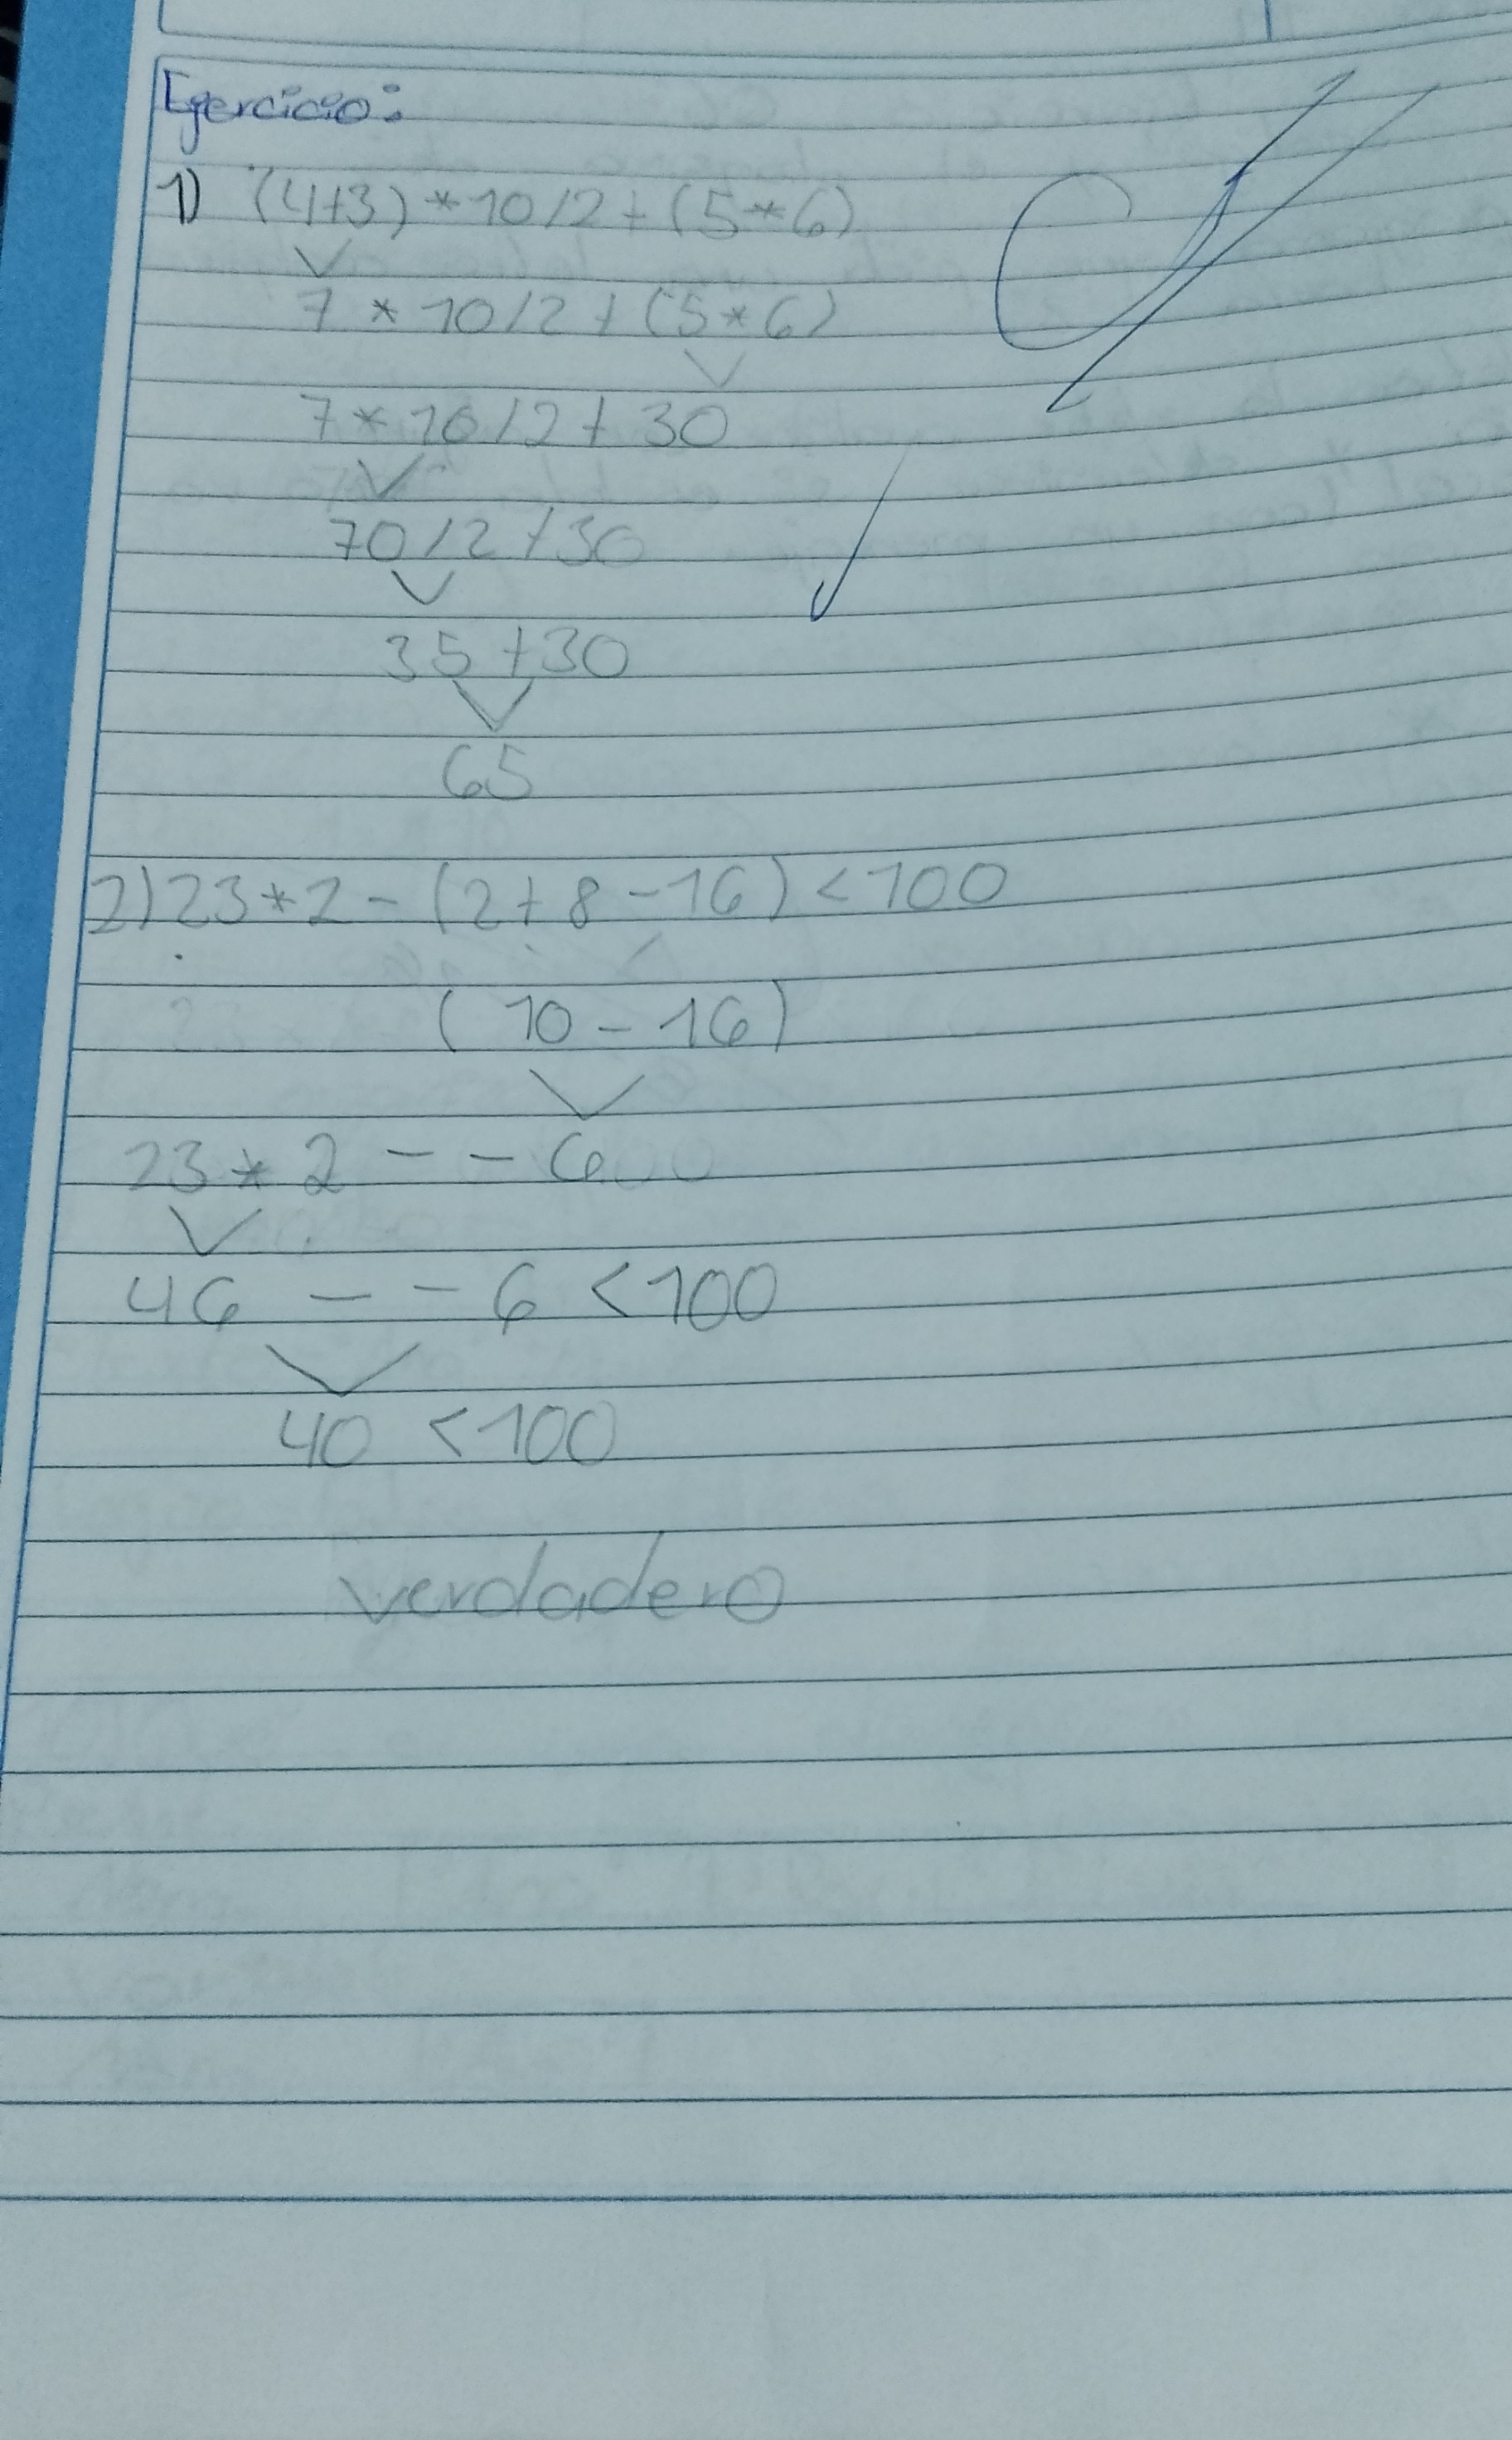 Ejercicio:
1) (4+3) * 10 / 2 + (5 * 6)
7 * 10 / 2 + (5 * 6)
7 * 10 / 2 + 30
70 / 2 + 30
35 + 30
65
2) 23 * 2 - (2 + 8 - 16) < 100
(10 - 16)
23 * 2 - - 6
46 - - 6 < 100
40 < 100
verdadero